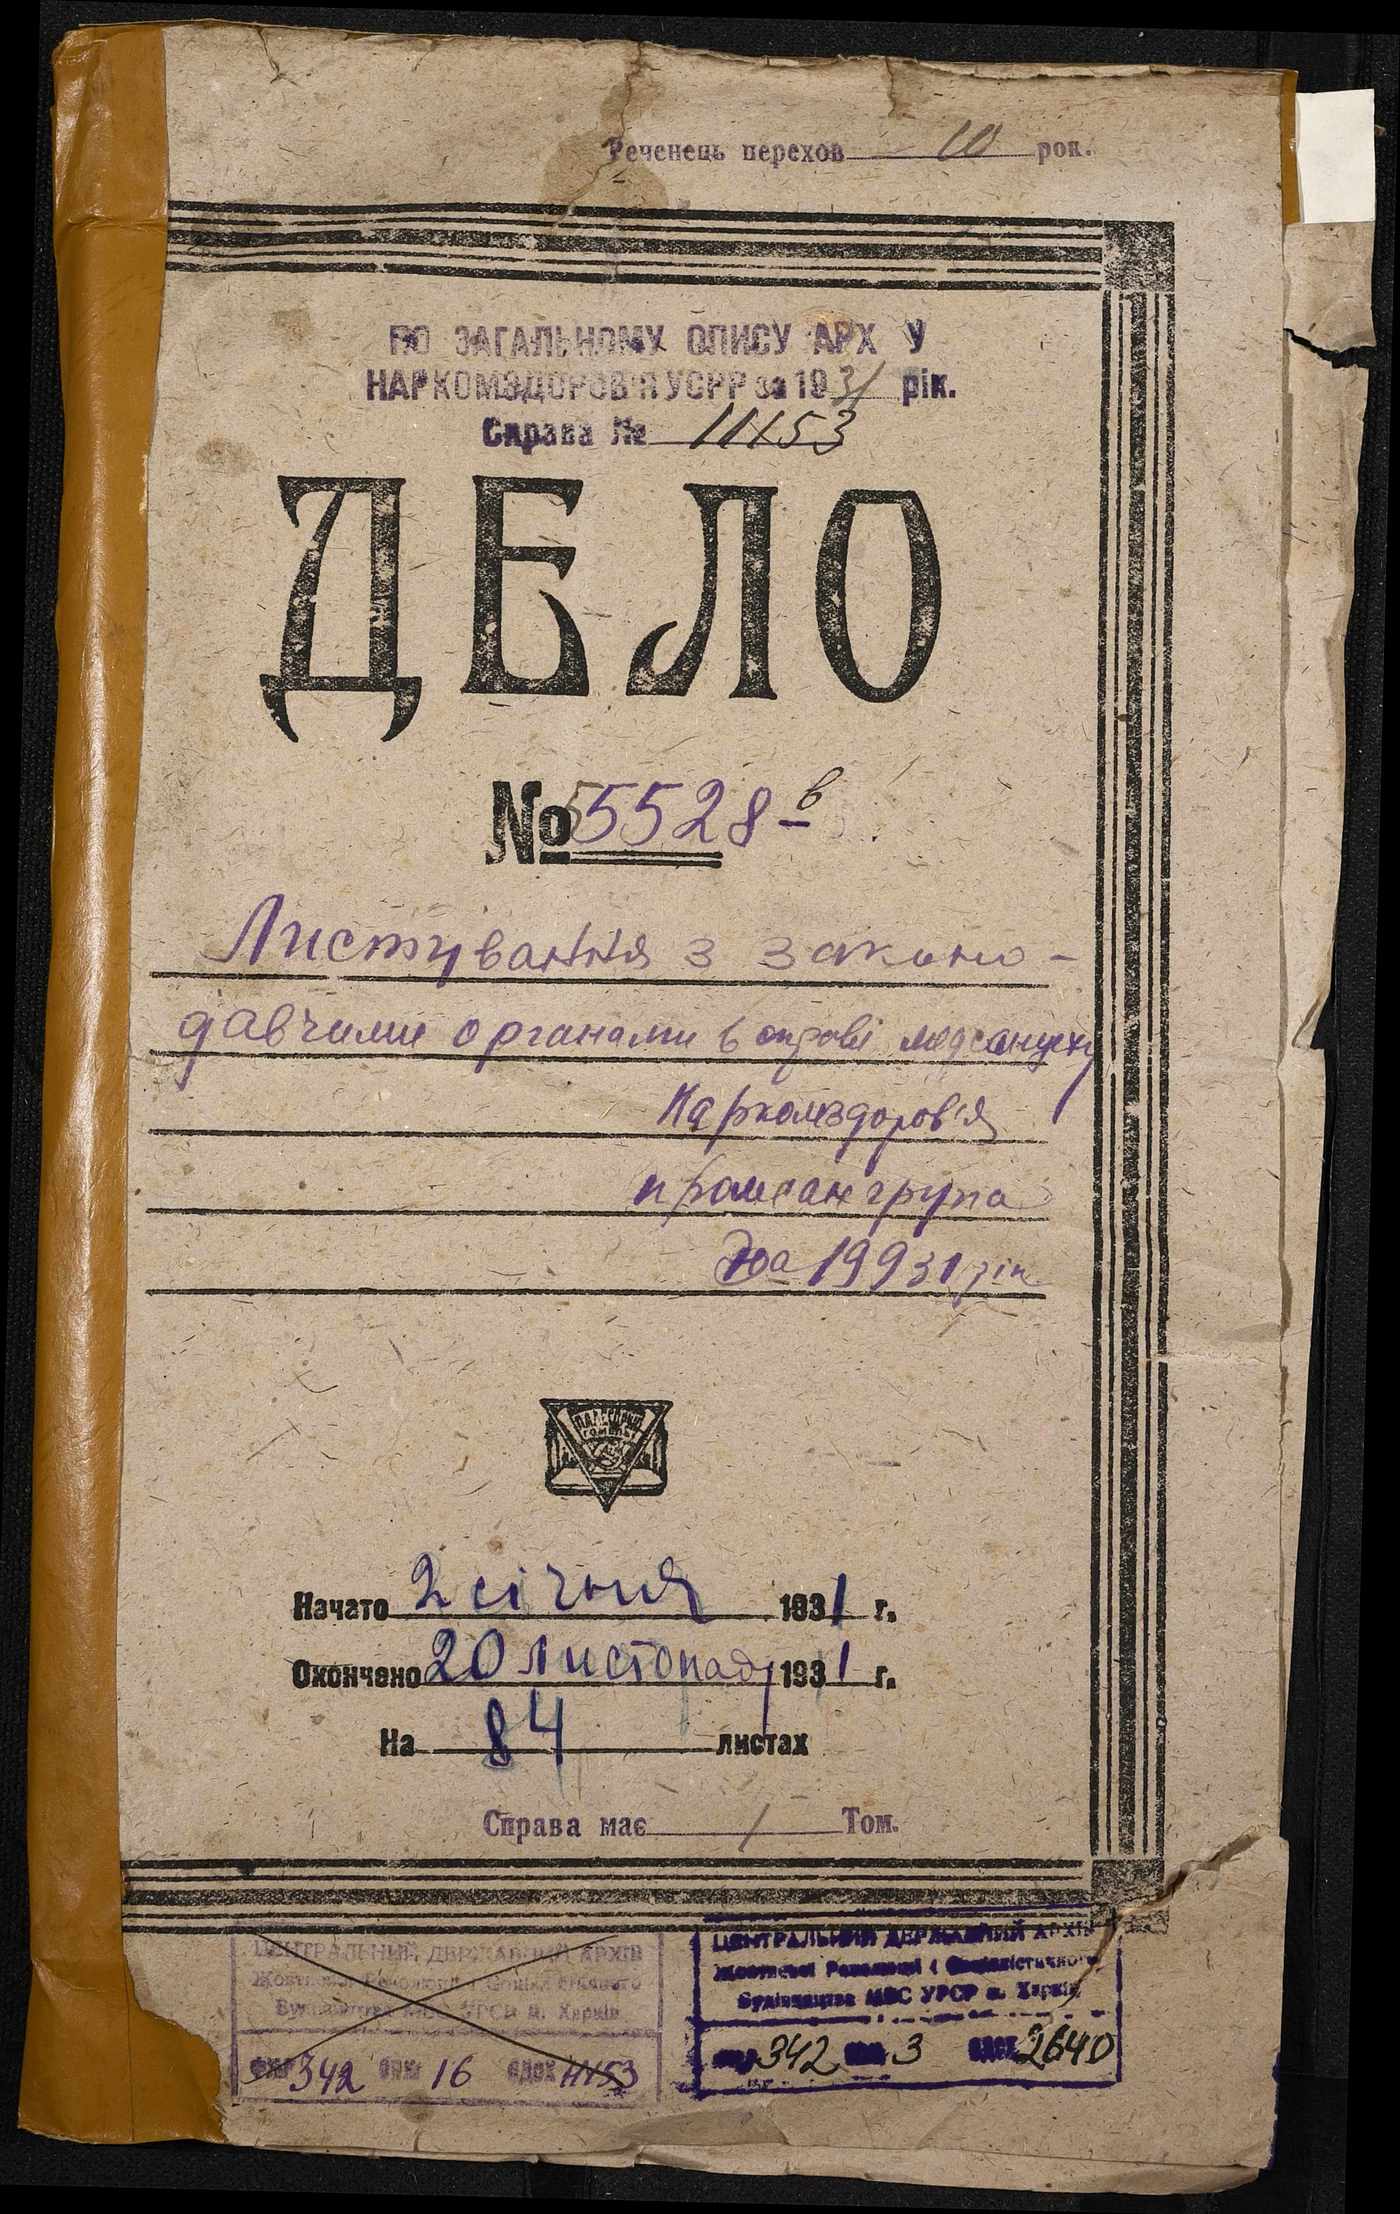 Реченець перехов 10 рок.
ПО ЗАГАЛЬНОМУ ОПИСУ АРХ У
НАРКОМЗДОРОВ'Я УСРР за 1931 рік.
Справа № 11153
ДЕЛО
№ 5528-в
Листування з законо-
давчими органами в справі медсанцеху
Наркомздоров'я
промсангрупа
На 1931 рік
ПАЛЕСПРИНТ
ГОМЕЛЬ
Начато 2 січня 1931 г.
Окончено 20 листопаду 1931 г.
На 84 листах
Справа має 1 Том.
ЦЕНТРАЛЬНИЙ ДЕРЖАВНИЙ АРХІВ
Жовтневої Революції і Соціалістичного
Будівництва МВС УРСР м. Харків
ФНР 342 ОПИ 16 ОДОХ 11153
ЦЕНТРАЛЬНИЙ ДЕРЖАВНИЙ АРХІВ
Жовтневої Революції і Соціалістичного
Будівництва МВС УРСР м. Харків
342 3 2640